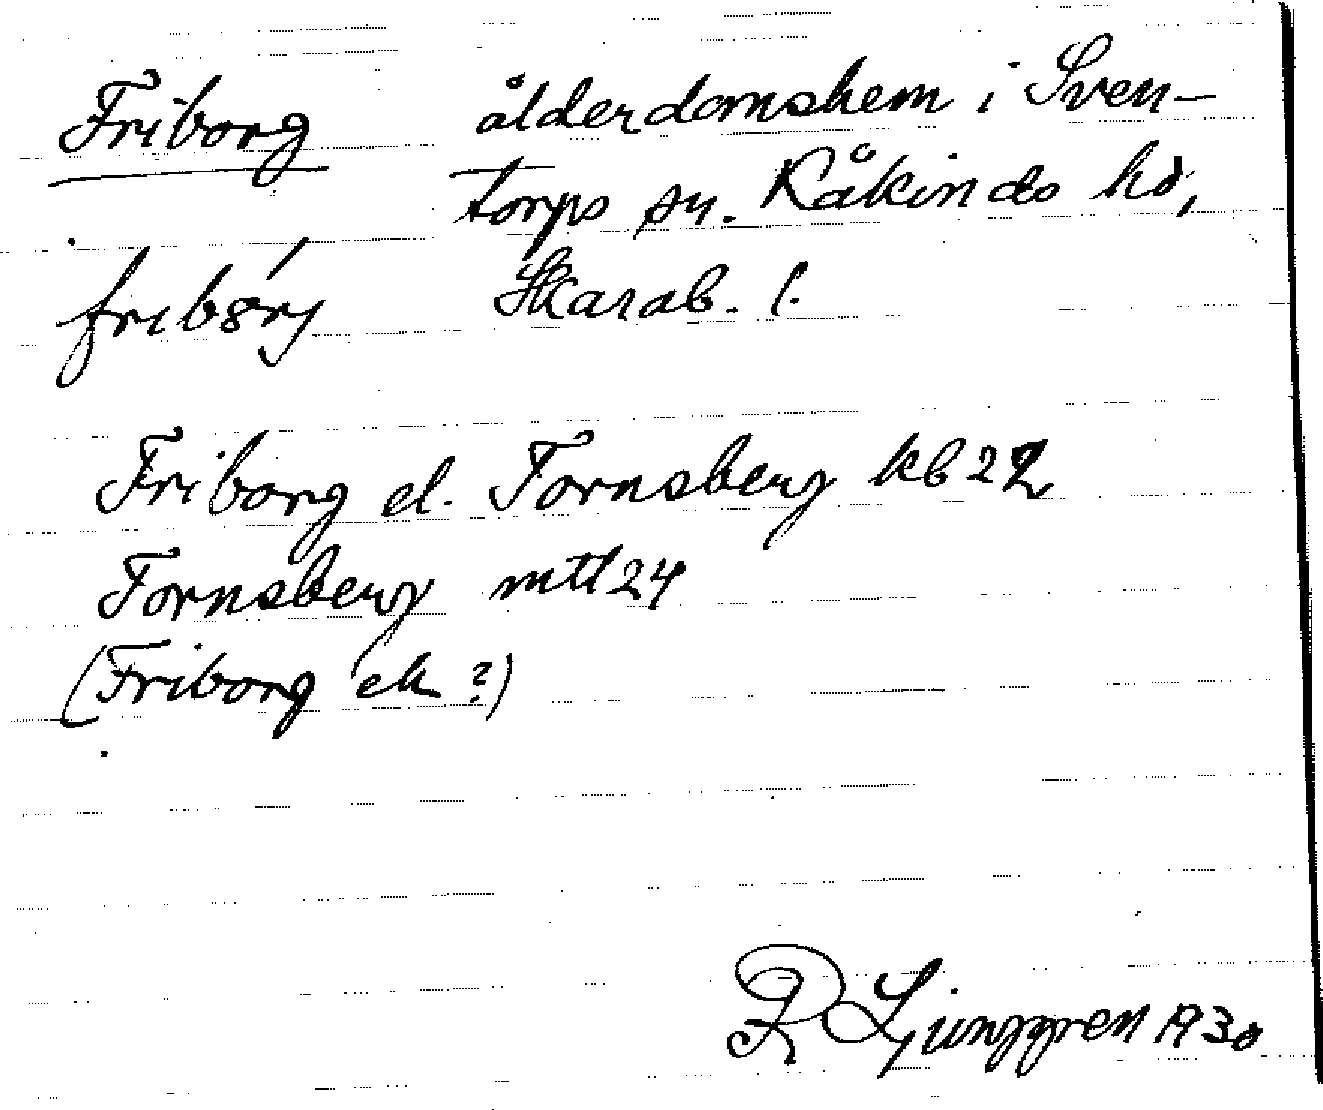 Friborg ålderdomshem i Sven-
torps sn. Kåkinds hd,
fribórj Skarab. l.
Friborg el. Tornsberg kb 22
Tornsberg mtl 24
(Friborg ek ?)
R Ljunggren 1930